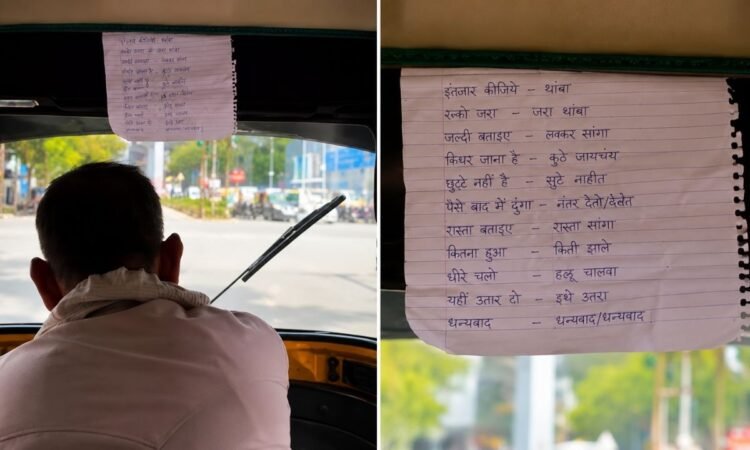 इंतजार कीजिये - थांबा
रुको जरा - जरा थांबा
जल्दी बताइए - लवकर सांगा
किधर जाना है - कुठे जायचंय
छुट्टे नहीं है - सुटे नाहीत
पैसे बाद में दुंगा - नंतर देतो/देवेत
रास्ता बताइए - रास्ता सांगा
कितना हुआ - किती झाले
धीरे चलो - हळू चालवा
यहीं उतार दो - इथे उतरा
धन्यबाद - धन्यबाद/धन्यबाद